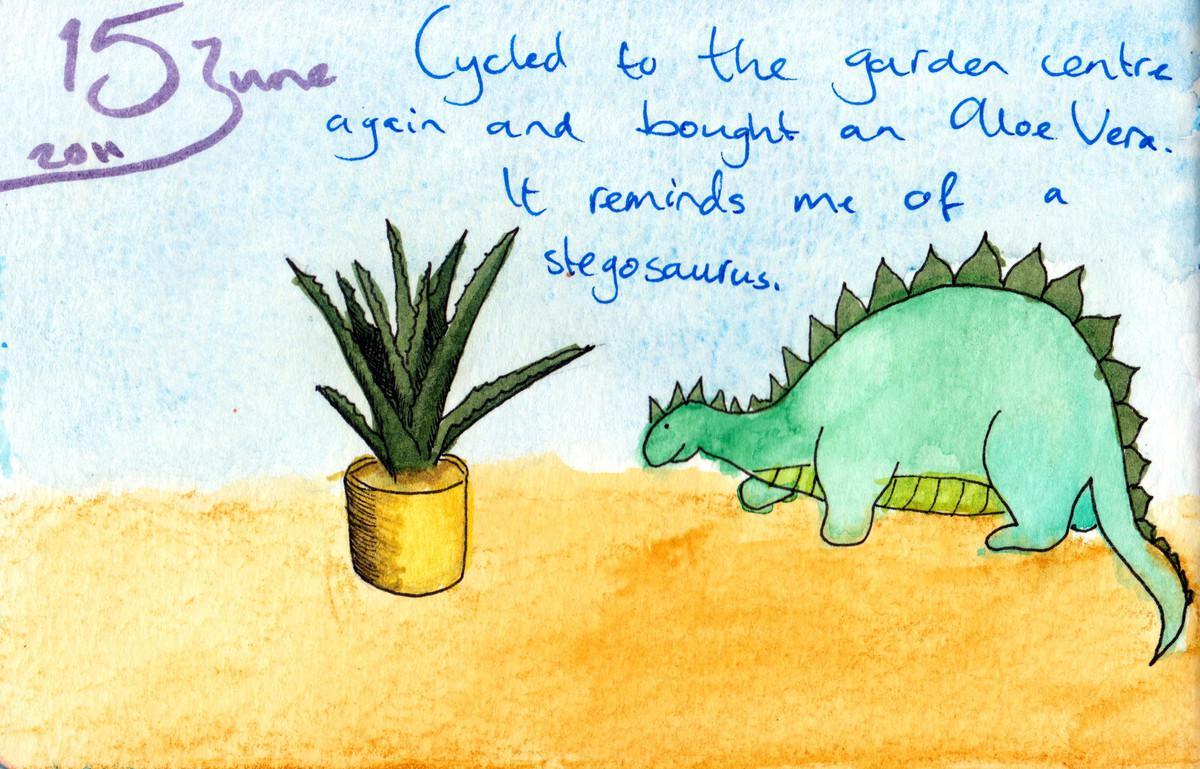 15 June
2011
Cycled to the garden centre
again and bought an Aloe Vera.
It reminds me of a
stegosaurus.